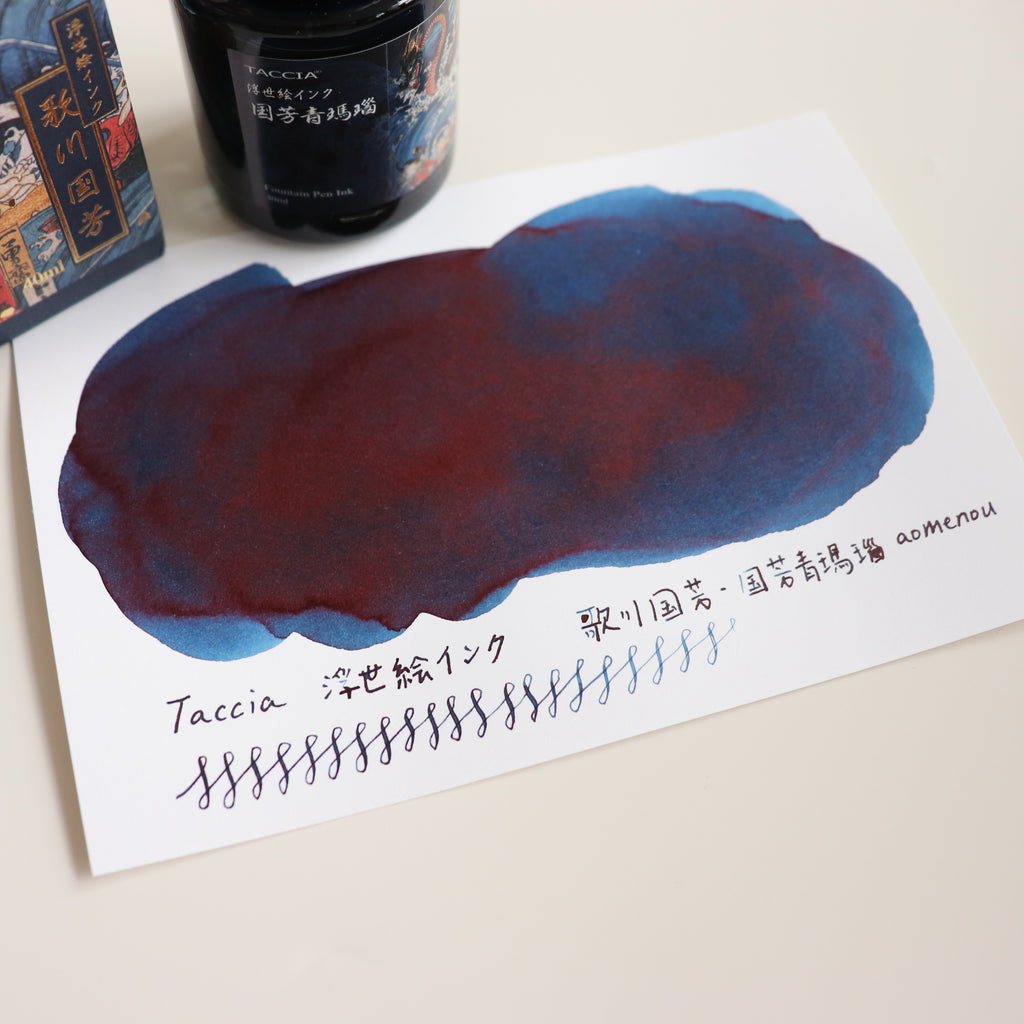 浮世絵インク
歌川国芳
40ml
TACCIA
浮世絵インク
国芳青瑪瑙
Fountain Pen Ink
40ml
Taccia 浮世絵インク 歌川国芳-国芳青瑪瑙 aomenou